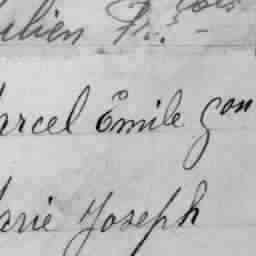 ulien Fr.
arcel Emile Gon
arie Joseph